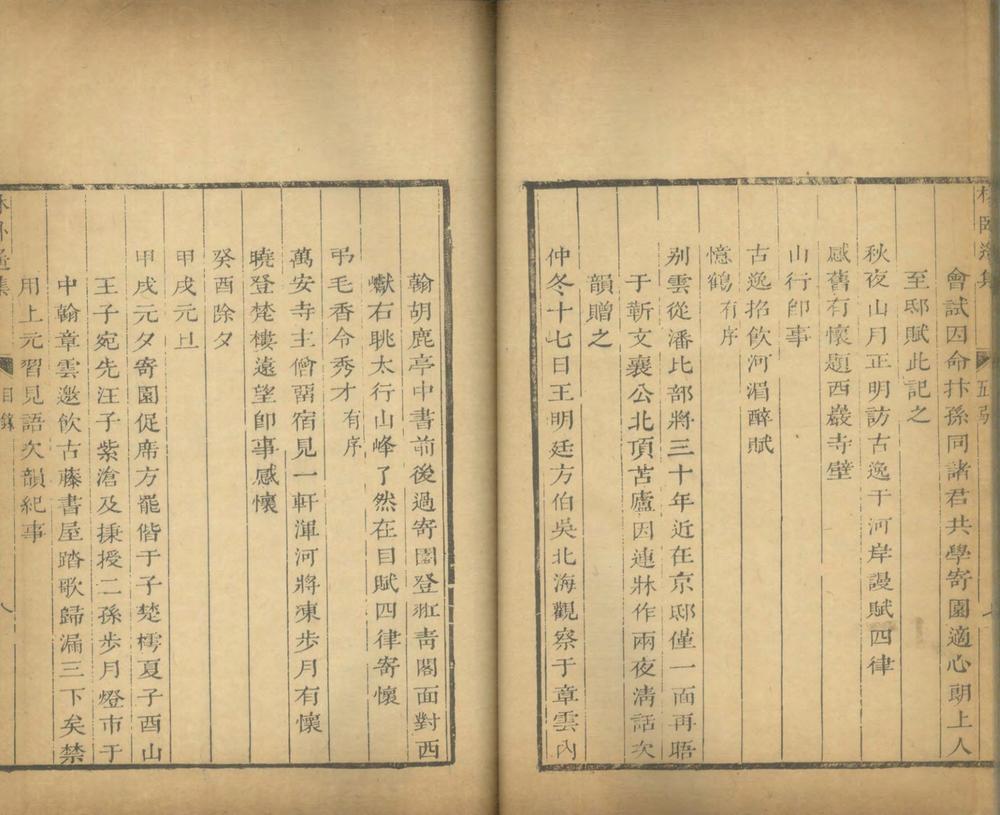 會試因命抃孫同諸君共學寄園適心朗上人
至邸賦此記之
秋夜山月正明訪古逸于河岸謾賦四律
感舊有懷題西巖寺壁
山行即事
古逸招飲河湄醉賦
憶鶴有序
別雲從潘比部將三十年近在京邸僅一面再晤
于靳文襄公北頂苦廬因連牀作兩夜清話次
韻贈之
仲冬十七日王明廷方伯吳北海觀察于章雲內
翰胡鹿亭中書前後過寄園登紅青閣面對西
巘右眺太行山峰了然在目賦四律寄懷
弔毛香令秀才有序
萬安寺主僧留宿見一軒渾河將凍步月有懷
曉登梵樓遠望即事感懷
癸酉除夕
甲戌元旦
甲戌元夕寄園促席方罷偕于子楚樗夏子酉山
王子宛先汪子紫滄及秉授二孫步月燈市于
中翰章雲邀飲古藤書屋踏歌歸漏三下矣禁
用上元習見語次韻紀事
目錄
八